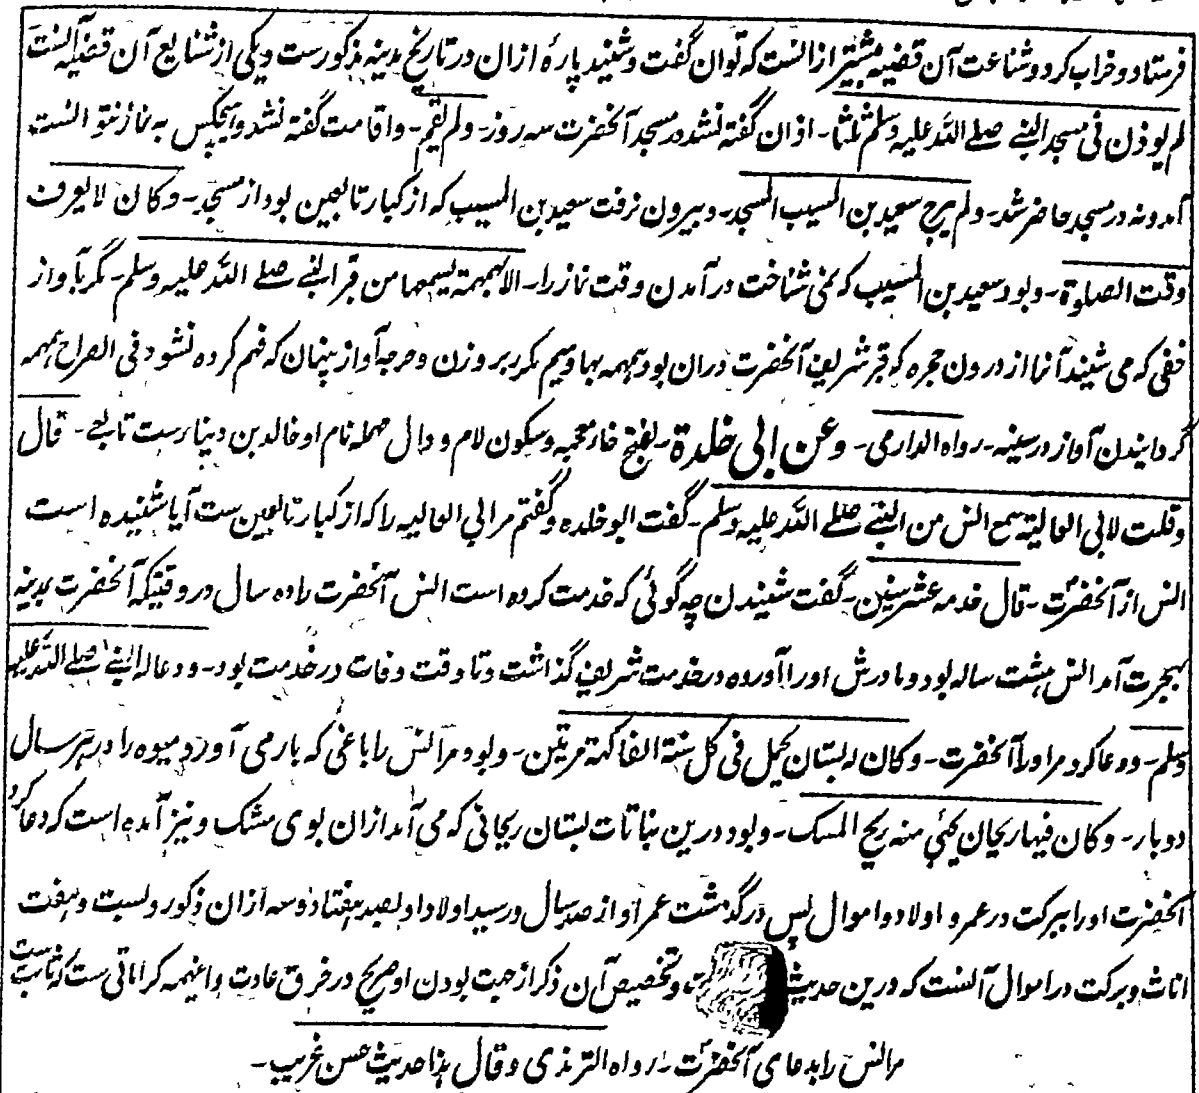 فرستاد و خراب کرد و شناعت آن قضیه بیشتر از آنست که توان گفت و شنید پارۀ ازان در تاریخ مدینه مذکورست و یکی از شنایع آن قضیه آنست
لم یوذن فی مسجد النبی صلے اللّٰه علیه وسلم ثلثا۔ اذان گفته نشد در مسجد آنحضرت سه روز۔ ولم یقم۔ و اقامت گفته نشد و هیچکس به نماز نتوانست
آمد و نه در مسجد حاضر شد۔ ولم یبرح سعید بن المسیب المسجد۔ و بیرون نرفت سعید بن المسیب که از کبار تابعین بود از مسجد۔ وکان لا یعرف
وقت الصلوة۔ و بود سعید بن المسیب که نمی شناخت در آمدن وقت نماز را۔ الا بهمهمة یسمعها من قبر النبی صلے اللّٰه علیه وسلم۔ مگر بآواز
خفی که می شنید آنرا از درون حجره که قبر شریف آنحضرت دران بود همهمه بها و میم مکرر بر وزن دحرجه آواز پنهان که فهم کرده نشود فی الصراح همهمه
گردانیدن آواز در سینه۔ رواه الدارمی۔ وعن ابی خلدة۔ بفتح خاء معجمه و سکون لام و دال مهمله نام او خالد بن دینارست تابعی۔ قال
وقلت لابی العالیة سمع انس من النبی صلے اللّٰه علیه وسلم۔ گفت ابو خلده و گفتم مر ابی العالیه را که از کبار تابعین ست آیا شنیده است
انس از آنحضرت۔ قال خدمه عشر سنین۔ گفت شنیدن چه گوئی که خدمت کرده است انس آنحضرت را ده سال در وقتیکه آنحضرت بمدینه
بهجرت آمد انس هشت ساله بود و مادرش او را آورده در خدمت شریف گذاشت و تا وقت وفات در خدمت بود۔ ودعا له النبی صلے اللّٰه علیه
وسلم۔ و دعا کرد مر او را آنحضرت۔ وکان له بستان یحمل فی کل سنة الفاکهة مرتین۔ و بود مر انس را باغی که بار می آورد میوه را در هر سال
دو بار۔ وکان فیها ریحان یجئ منه ریح المسک۔ و بود درین نباتات بستان ریحانی که می آمد ازان بوی مشک و نیز آمده است که دعا کرد
آنحضرت او را ببرکت در عمر و اولاد و اموال پس درگذشت عمر او از صد سال و رسید اولاد او بصد هفتاد و سه ازان ذکور و بست و هفت
اناث و برکت در اموال آنست که درین حدیث و تخصیص آن ذکر از جهت بودن او صریح در خرق عادت و اینهمه کراماتی ست که ثابت ست
مر انس را بدعای آنحضرت۔ رواه الترمذی وقال هذا حدیث حسن غریب۔